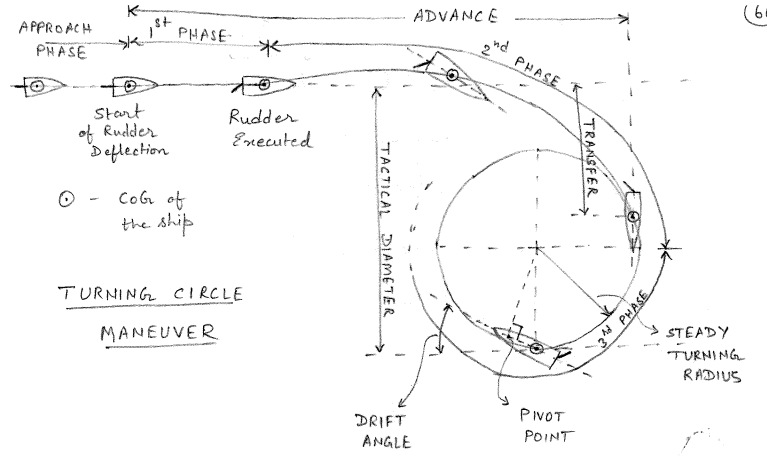 ADVANCE
(6
APPROACH
PHASE
1st PHASE
2nd PHASE
Start
of Rudder
Deflection
Rudder
Executed
TRANSFER
TACTICAL DIAMETER
- CoG of
the ship
TURNING CIRCLE
MANEUVER
3rd PHASE
STEADY
TURNING
RADIUS
DRIFT
ANGLE
PIVOT
POINT